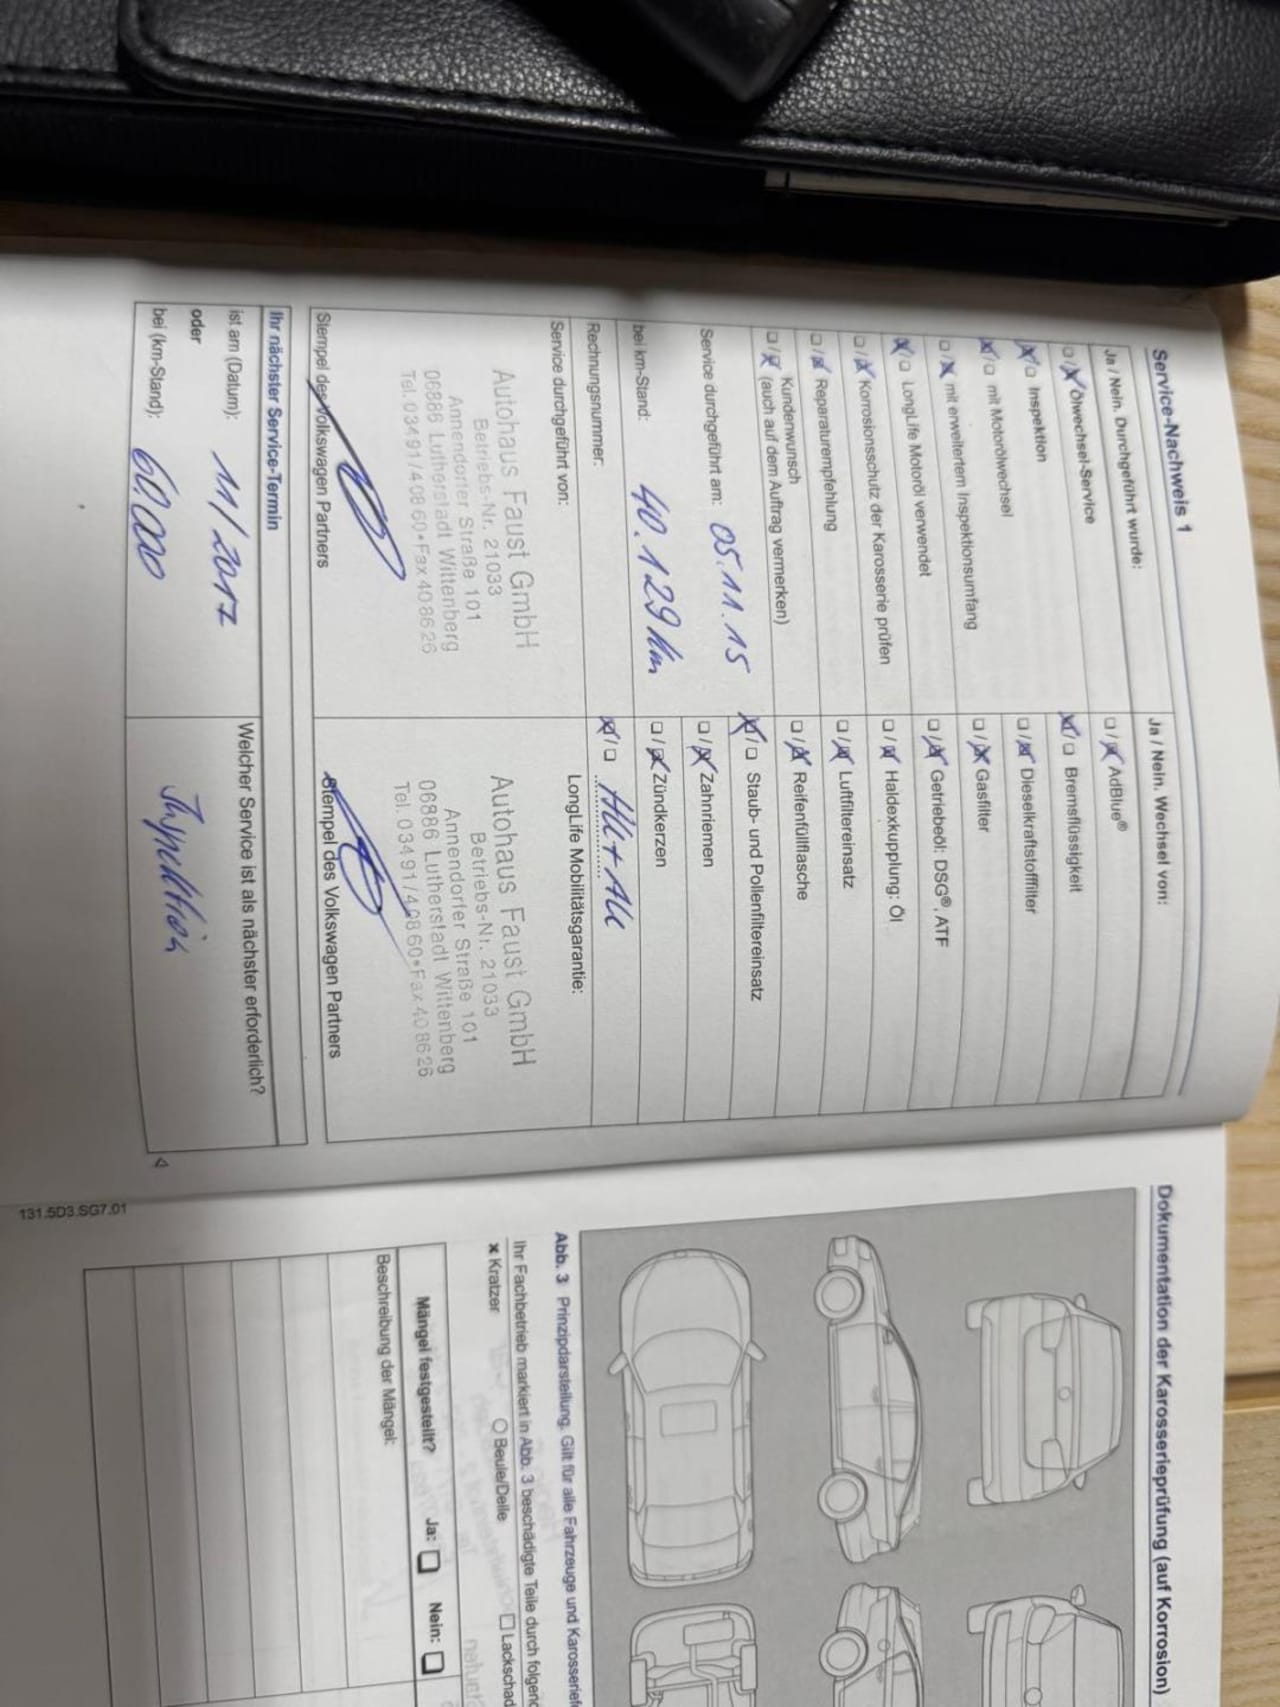 Service-Nachweis 1
Ja / Nein. Durchgeführt wurde:
Ölwechsel-Service
Inspektion
mit Motorölwechsel
mit erweitertem Inspektionsumfang
LongLife Motoröl verwendet
Korrosionsschutz der Karosserie prüfen
Reparaturempfehlung
Kundenwunsch
(auch auf dem Auftrag vermerken)
Service durchgeführt am: 05.11.15
bei km-Stand: 40.129 km
Rechnungsnummer:
Service durchgeführt von:
Autohaus Faust GmbH
Betriebs-Nr. 21033
Annendorfer Straße 101
06886 Lutherstadt Wittenberg
Tel. 03491/40860•Fax 408626
Stempel des Volkswagen Partners
Ja / Nein. Wechsel von:
AdBlue®
Bremsflüssigkeit
Dieselkraftstofffilter
Gasfilter
Getriebeöl: DSG®, ATF
Haldexkupplung: Öl
Luftfiltereinsatz
Reifenfüllflasche
Staub- und Pollenfiltereinsatz
Zahnriemen
Zündkerzen
LongLife Mobilitätsgarantie:
Autohaus Faust GmbH
Betriebs-Nr. 21033
Annendorfer Straße 101
06886 Lutherstadt Wittenberg
Tel. 03491/40860•Fax 408626
Stempel des Volkswagen Partners
Ihr nächster Service-Termin
ist am (Datum): 11/2017
oder
bei (km-Stand): 60.000
Welcher Service ist als nächster erforderlich?
Inspektion
131.5D3.SG7.01
Dokumentation der Karosserieprüfung (auf Korrosion)
Abb. 3 Prinzipdarstellung. Gilt für alle Fahrzeuge und
Ihr Fachbetrieb markiert in Abb. 3 beschädigte Teile durch
× Kratzer
○ Beule/Delle
Mängel festgestellt? Ja: Nein:
Beschreibung der Mängel: